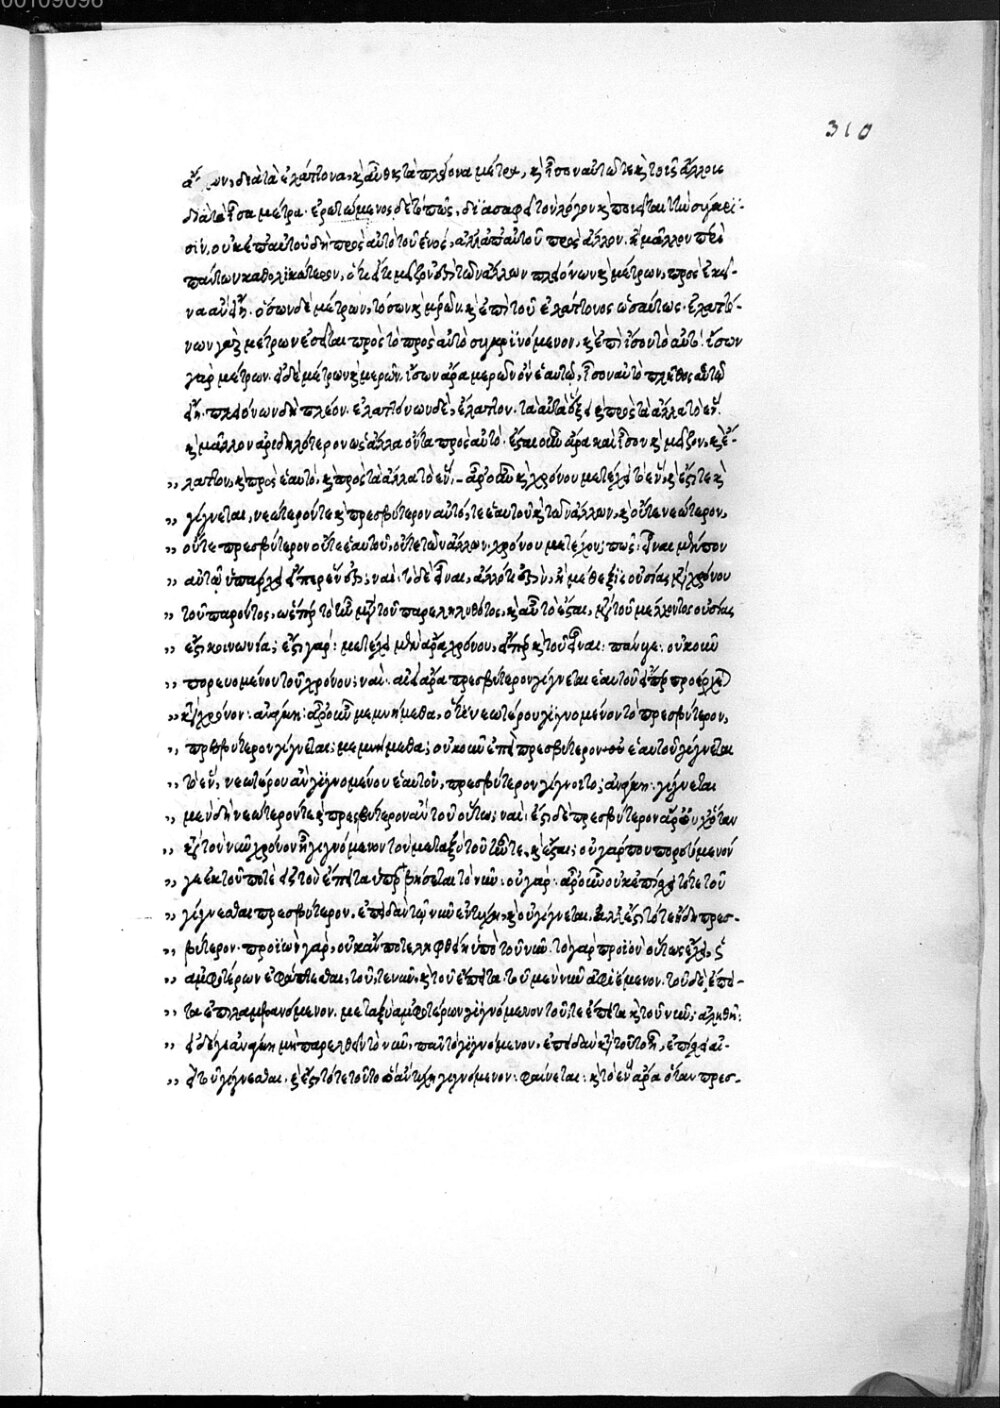 00109096
310
διὰ τὰ ἐλάττονα, καὶ αὖθις τὰ πλείονα μέτρα, καὶ ἴσον αὐτῷ τε καὶ τοῖς ἄλλοις
διὰ τὰ ἴσα μέτρα· ἐρωτώμενος δὲ τὸ πῶς, διασαφεῖ τὸν λόγον καὶ ποιεῖται τὴν σύγκρι-
σιν, οὐκ ἐπ' αὐτοῦ δὴ πρὸς αὐτὸ τοῦ ἑνὸς, ἀλλ' ἀπ' αὐτοῦ πρὸς ἄλλον. ἢ μᾶλλον περὶ
πάντων καθολικώτερον, ὅτι εἴτε μεῖζον ἐστὶ τῶν ἄλλων πλειόνων καὶ μέτρων, πρὸς ἐκεῖ-
να ἂν εἴη· ὅσων δὲ μέτρων, τόσων καὶ μερῶν· καὶ ἐπὶ τοῦ ἐλάττονος ὡσαύτως· ἐλαττό-
νων γὰρ μέτρων ἔσται πρὸς τὸ πρὸς αὐτὸ συγκρινόμενον, καὶ ἐπὶ ἴσου τὸ αὐτό· ἴσων
γὰρ μέτρων. εἰ δὲ μέτρων καὶ μερῶν. ἴσων ἄρα μερῶν ὂν ἑαυτῷ, ἴσον αὐτὸ πλῆθος αὑτῷ
εἴη· πλειόνων δὴ πλέον· ἐλαττόνων δὲ, ἔλαττον. τὰ αὐτὰ δείξει καὶ πρὸς τὰ ἄλλα τὸ ἕν.
καὶ μᾶλλον ἀριδηλότερον ὡς ἄλλα ὄντα πρὸς αὐτό· ἔσται οὖν ἄρα καὶ ἴσον καὶ μεῖζον, καὶ ἔ-
λαττον, καὶ πρὸς ἑαυτὸ, καὶ πρὸς τὰ ἄλλα τὸ ἕν. ἆρ' οὖν καὶ χρόνου μετέχει τὸ ἓν, καὶ ἐστί τε καὶ
γίγνεται, νεώτερόν τε καὶ πρεσβύτερον αὐτό, τε ἑαυτοῦ καὶ τῶν ἄλλων, καὶ οὔτε νεώτερον,
οὔτε πρεσβύτερον οὔτε ἑαυτοῦ, οὔτε τῶν ἄλλων, χρόνου μετέχον; πῶς; εἶναι μὲν που
αὐτῷ ὑπάρχει εἴπερ ἕν ἐστι; ναί. τὸ δὲ εἶναι, ἄλλό τι ἐστὶν, ἢ μέθεξις οὐσίας μετὰ χρόνου
τοῦ παρόντος, ὥσπερ τὸ ἦν μετὰ τοῦ παρεληλυθότος, καὶ αὖ τὸ ἔσται, μετὰ τοῦ μέλλοντος οὐσίας
ἐστὶ κοινωνία; ἔστι γάρ: μετέχει μὲν ἄρα χρόνου, εἴπερ καὶ τοῦ εἶναι: πάνυγε· οὐκοῦν
πορευομένου τοῦ χρόνου; ναί· ἀεὶ ἄρα πρεσβύτερον γίγνεται ἑαυτοῦ εἴπερ προέρχεται
κατὰ χρόνον: ἀνάγκη: ἆρ' οὖν μεμνήμεθα, ὅτι νεωτέρου γιγνομένου τὸ πρεσβύτερον,
πρεσβύτερον γίγνεται; μεμνήμεθα; οὐκοῦν ἐπεὶ πρεσβύτερον ἑαυτοῦ γίγνεται
τὸ ἓν, νεωτέρου ἂν γιγνομένου ἑαυτοῦ, πρεσβύτερον γίγνοιτο; ἀνάγκη· γίγνεται
μὲν δὴ νεώτερόν τε καὶ πρεσβύτερον αὑτοῦ οὕτω; ναί; ἔστι δὲ πρεσβύτερον ἆρ' οὐχ ὅταν
κατὰ τὸν νῦν χρόνον ᾖ γιγνόμενον τὸν μεταξὺ τοῦ ἦν τε, καὶ ἔσται; οὐ γάρ που πορευόμενόν
γε ἐκ τοῦ ποτὲ εἰς τὸ ἔπειτα ὑπερβήσεται τὸ νῦν· οὐ γάρ· ἆρ' οὖν οὐκ ἐπίσχει τότε τοῦ
γίγνεσθαι πρεσβύτερον, ἐπειδὰν τῷ νῦν ἐντύχῃ, καὶ οὐ γίγνεται, ἀλλ' ἔστι τότ' ἤδη πρεσ-
βύτερον· προϊὸν γὰρ, οὐκ ἄν ποτε ληφθείη ὑπὸ τοῦ νῦν. τὸ γὰρ προϊὸν οὕτως ἔχει, ὡς
ἀμφοτέρων ἐφάπτεσθαι, τοῦ τε νῦν, καὶ τοῦ ἔπειτα· τοῦ μὲν νῦν ἀφιέμενον. τοῦ δὲ ἔπει-
τα ἐπιλαμβανόμενον. μεταξὺ ἀμφοτέρων γιγνόμενον τοῦ τε ἔπειτα καὶ τοῦ νῦν; ἀληθῆ:
εἰ δέ γε ἀνάγκη μὴ παρελθεῖν τὸ νῦν, πᾶν τὸ γιγνόμενον, ἐπειδὰν κατὰ τοῦτο ᾖ, ἐπίσχει ἀ-
εὶ τοῦ γίγνεσθαι, καὶ ἔστι τότε τοῦτο ὃ ἂν τύχῃ γιγνόμενον: φαίνεται: καὶ τὸ ἓν ἄρα ὅταν πρεσ-